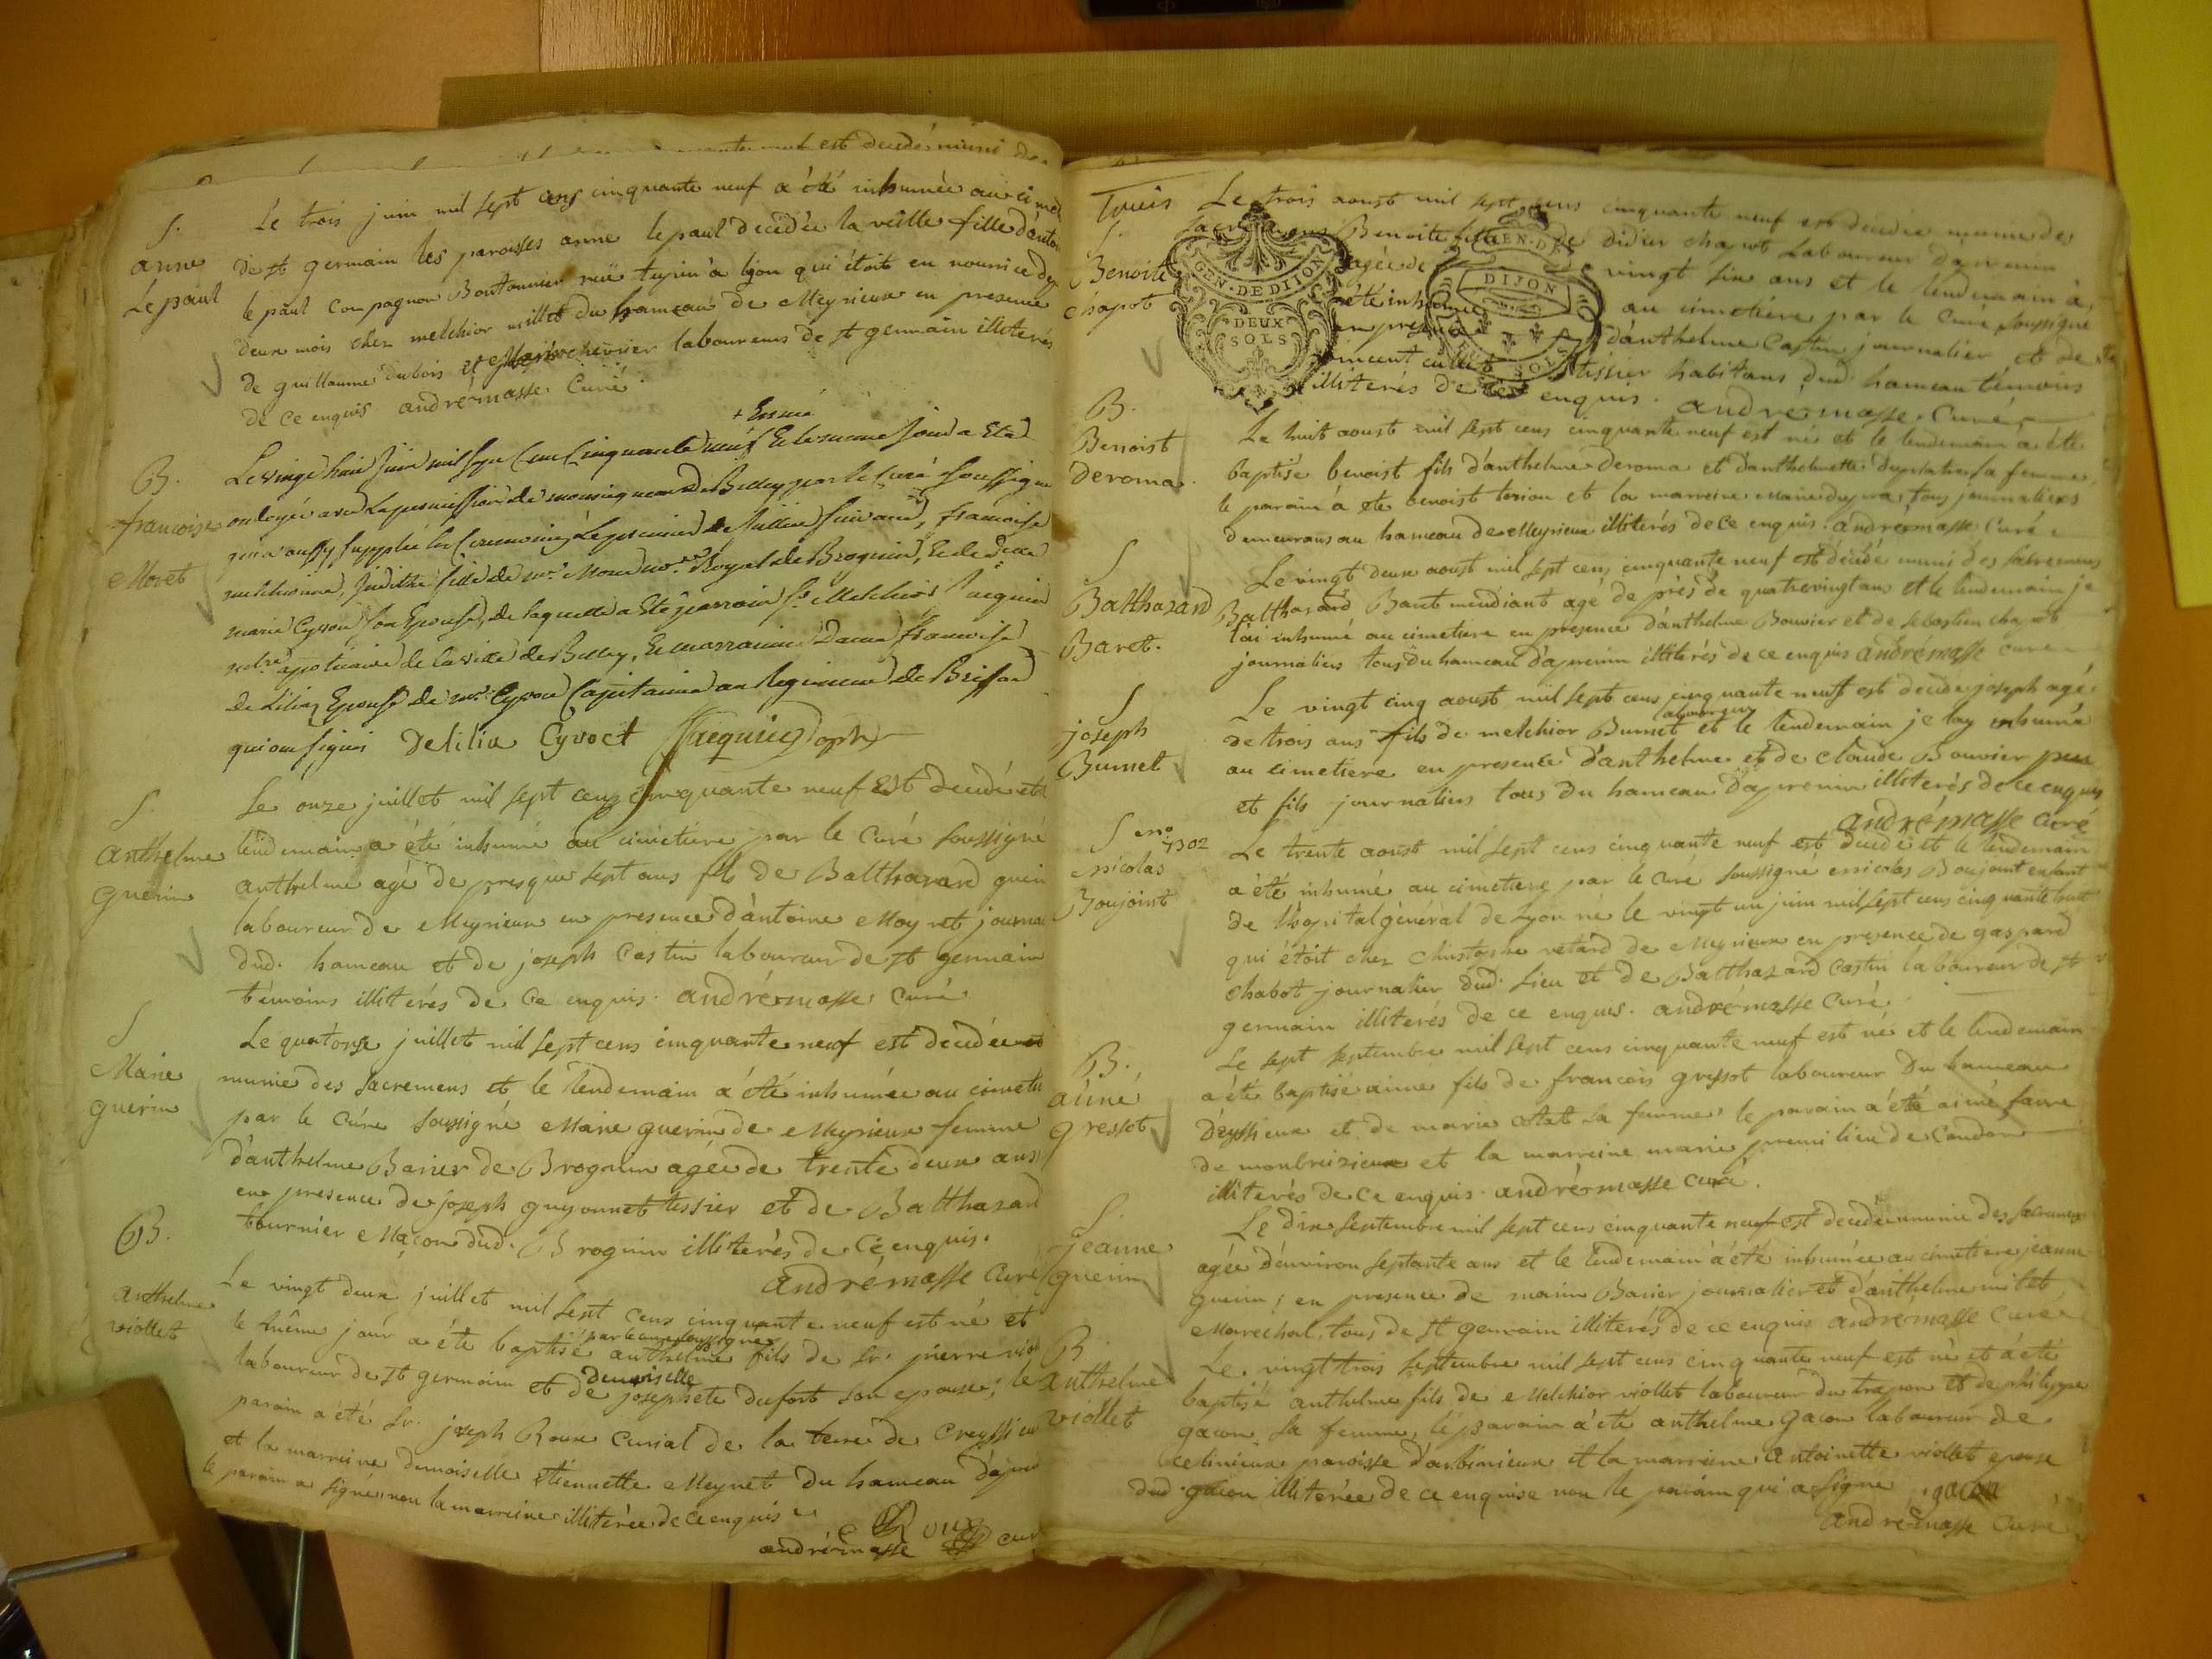 S.
anne
Le paul
Le trois juin mil sept cens cinquante neuf a été inhumée au cime
de st germain les paroisses anne le paul decedée la veille fille d'anto
le paul compagnon Boutonnier ruë tupin a lyon qui étoit en nourrice dep
deux mois chez melchior millet du hameau de Meyrieux en presence
de guillaume dubois et chevrier laboureurs de st germain illiterés
de ce enquis. andrémasse Curé
B.
francoise
Moret
+ Est née
Le vingt huit Juin mil sept Cent Cinquante neuf Et le meme Jour a Eté
ondoyée avec La permission de monseigneur de Belley par le Curé soussigné
qui a aussy supplée les Ceremonies Le premier de Juillet suivant, francoise
melchionne, Judithe fille de mr. Moret nore. Royal de Brognin, Et de Delle
marie Cyvoct son Epouse, de laquelle a Eté parrain sr. Melchior Jacquier
me. apoticaire de la ville de Belley, Et marraine Dame francoise
de Lilia Epouse de mr. Cyvoct Capitaine au Regiment de Brissac
qui ont signés Delilia Cyvoct Jacquier
S.
Anthelme
Guerin
Le onze juillet mil sept cens cinquante neuf est decedé et le
lendemain a été inhumé au cimetiere par le Curé soussigné
anthelme agé de presque sept ans fils de Balthazard guerin
laboureur de Meyrieux en presence d'antoine Moynet journa
dud. hameau et de joseph Castin laboureur de st germain
témoins illiterés de ce enquis. andrémasse curé
S
Marie
guerin
Le quatorze juillet mil sept cens cinquante neuf est decedée
munie des sacremens et le lendemain a été inhumée au cimetie
par le Curé soussigné Marie guerin de Meyrieux femme
d'anthelme Barier de Brognin agée de trente deux ans
en presence de joseph guyonnet tissier et de Balthazard
tournier Maçon dud. Brognin illiterés de ce enquis.
andrémasse Curé
B.
anthelme
viollet
Le vingt deux juillet mil sept cens cinquante neuf est né et
le même jour a été baptisé par le curé soussigné anthelme fils de sr. pierre viol
laboureur de st germain et de demoiselle josephete dufort son epouse; le
parain a été sr. joseph Roux Curial de la terre de Creyssieu
et la marreine demoiselle étiennette Meynet du hameau d'apre
le parain a signé, non la marreine illiterée de ce enquise.
Roux
andrémasse cur
trois
S.
Benoite
chapot
Le trois aoust mil sept cens cinquante neuf est decedée munie des
sacremens Benoite fille de didier chapot Laboureur d'apremin
agée de vingt six ans et le lendemain a
été inhumée au cimetiere par le Curé soussigné
en presence d'anthelme Castin journalier et de
vincent tissier habitans dud. hameau témoins
illiterés de ce enquis. andrémasse. Curé
GEN. DE DIJON
DEUX
SOLS
GEN. DE
DIJON
B.
Benoist
deroma.
Le huit aoust mil sept cens cinquante neuf est né et le lendemain a été
baptisé benoist fils d'anthelme deroma et d'anthelmette duplatre sa femme,
le parain a été benoist torion et la marreine marie dupra, tous journaliers
demeurans au hameau de Meyrieux illiterés de ce enquis. andrémasse curé
S
Balthazard
Baret.
Le vingt deux aoust mil sept cens cinquante neuf est décédé muni des sacremens
Balthazard Baret mendiant agé de près de quatre vingt ans et le lendemain je
l'ai inhumé au cimetiere en presence d'anthelme Bouvier et de sebastien chapot
journaliers tous du hameau d'apremin illiterés de ce enquis andrémasse curé
S
joseph
Burnet
Le vingt cinq aoust mil sept cens cinquante neuf est decedé joseph agé
de trois ans fils de melchior Burnet laboureur et le lendemain je l'ay inhumé
au cimetiere en presence d'anthelme et de claude Bouvier pere
et fils journaliers tous du hameau d'apremin illiterés de ce enquis
andrémasse curé
S no. 1302
Nicolas
Boujoint
Le trente aoust mil sept cens cinquante neuf est decedé et le lendemain
a été inhumé au cimetiere par le curé soussigné nicolas Boujoint enfant
de l'hopital général de Lyon né le vingt un juin mil sept cens cinquante huit
qui étoit chez Christophe retard de Meyrieux en presence de gaspard
chabot journalier dud. lieu et de Balthazard Castin laboureur de st
germain illiterés de ce enquis. andrémasse Curé.
B.
aimé
gressot
Le sept septembre mil sept cens cinquante neuf est né et le lendemain
a été baptisé aimé fils de francois gressot laboureur du hameau
d'eyssieux et de marie ostat sa femme, le parain a été aimé favre
de monbreizieux et la marreine marie premilieu de Condon
illiterés de ce enquis. andrémasse curé.
S.
jeanne
guerin
Le dix septembre mil sept cens cinquante neuf est decedée munie des sacremens
agée d'environ septante ans et le lendemain a été inhumée au cimetiere jeanne
guerin; en presence de marin Barier journalier et d'anthelme milet
Marechal, tous de st germain illiterés de ce enquis andrémasse curé
B
anthelme
viollet
Le vingt trois septembre mil sept cens cinquante neuf est né et a été
baptisé anthelme fils de Melchior viollet laboureur du trapon et de philippe
gacon sa femme, le parain a été anthelme gacon laboureur de
celinieux paroisse d'arbinieux et la marreine Antoinette viollet epouse
dud. gacon illiterée de ce enquise non le parain qui a signé gacon
andrémasse Curé